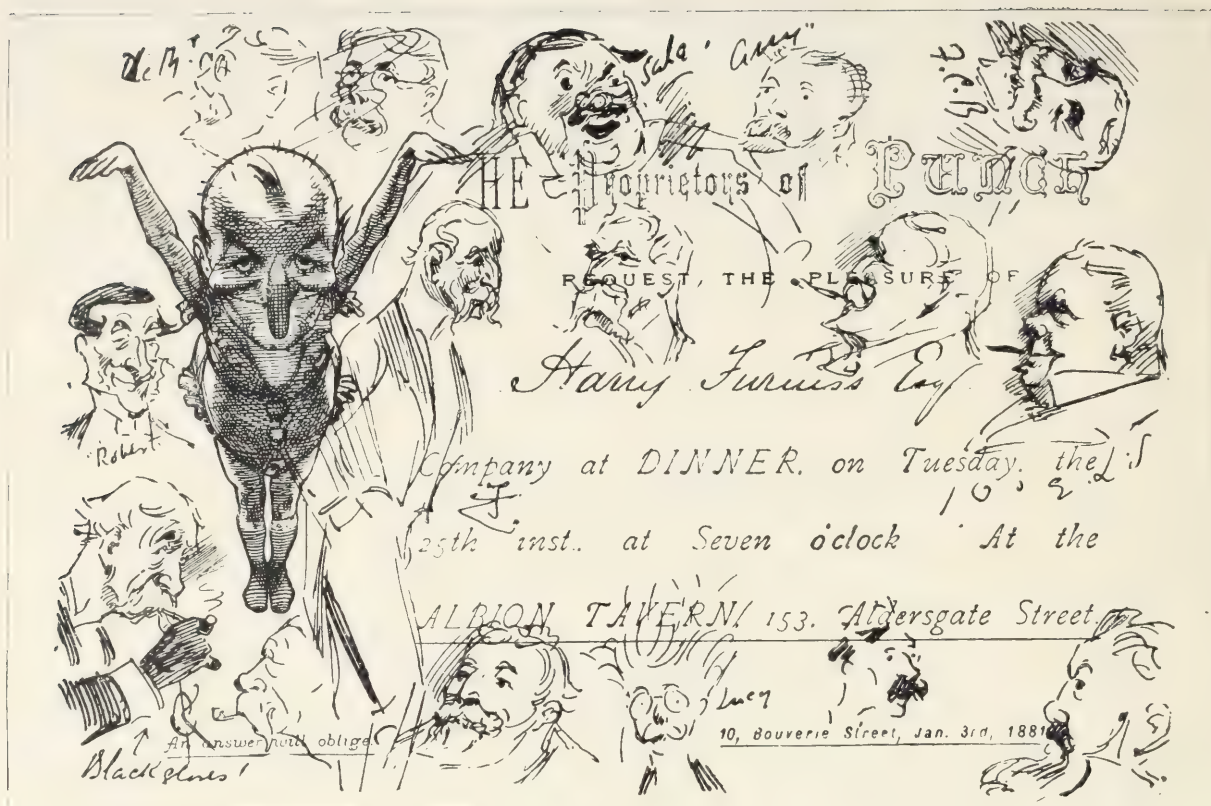 Sala'
THE Proprietors of PUNCH
REQUEST, THE PLEASURE OF
Harry Furniss Esq
Company at DINNER. on Tuesday. the
25th inst.. at Seven o'clock At the
ALBION TAVERN, 153. Aldersgate Street,
"Robert"
Lucy
10, Bouverie Street, Jan. 3rd, 1881
An answer will oblige.
Black gloves!